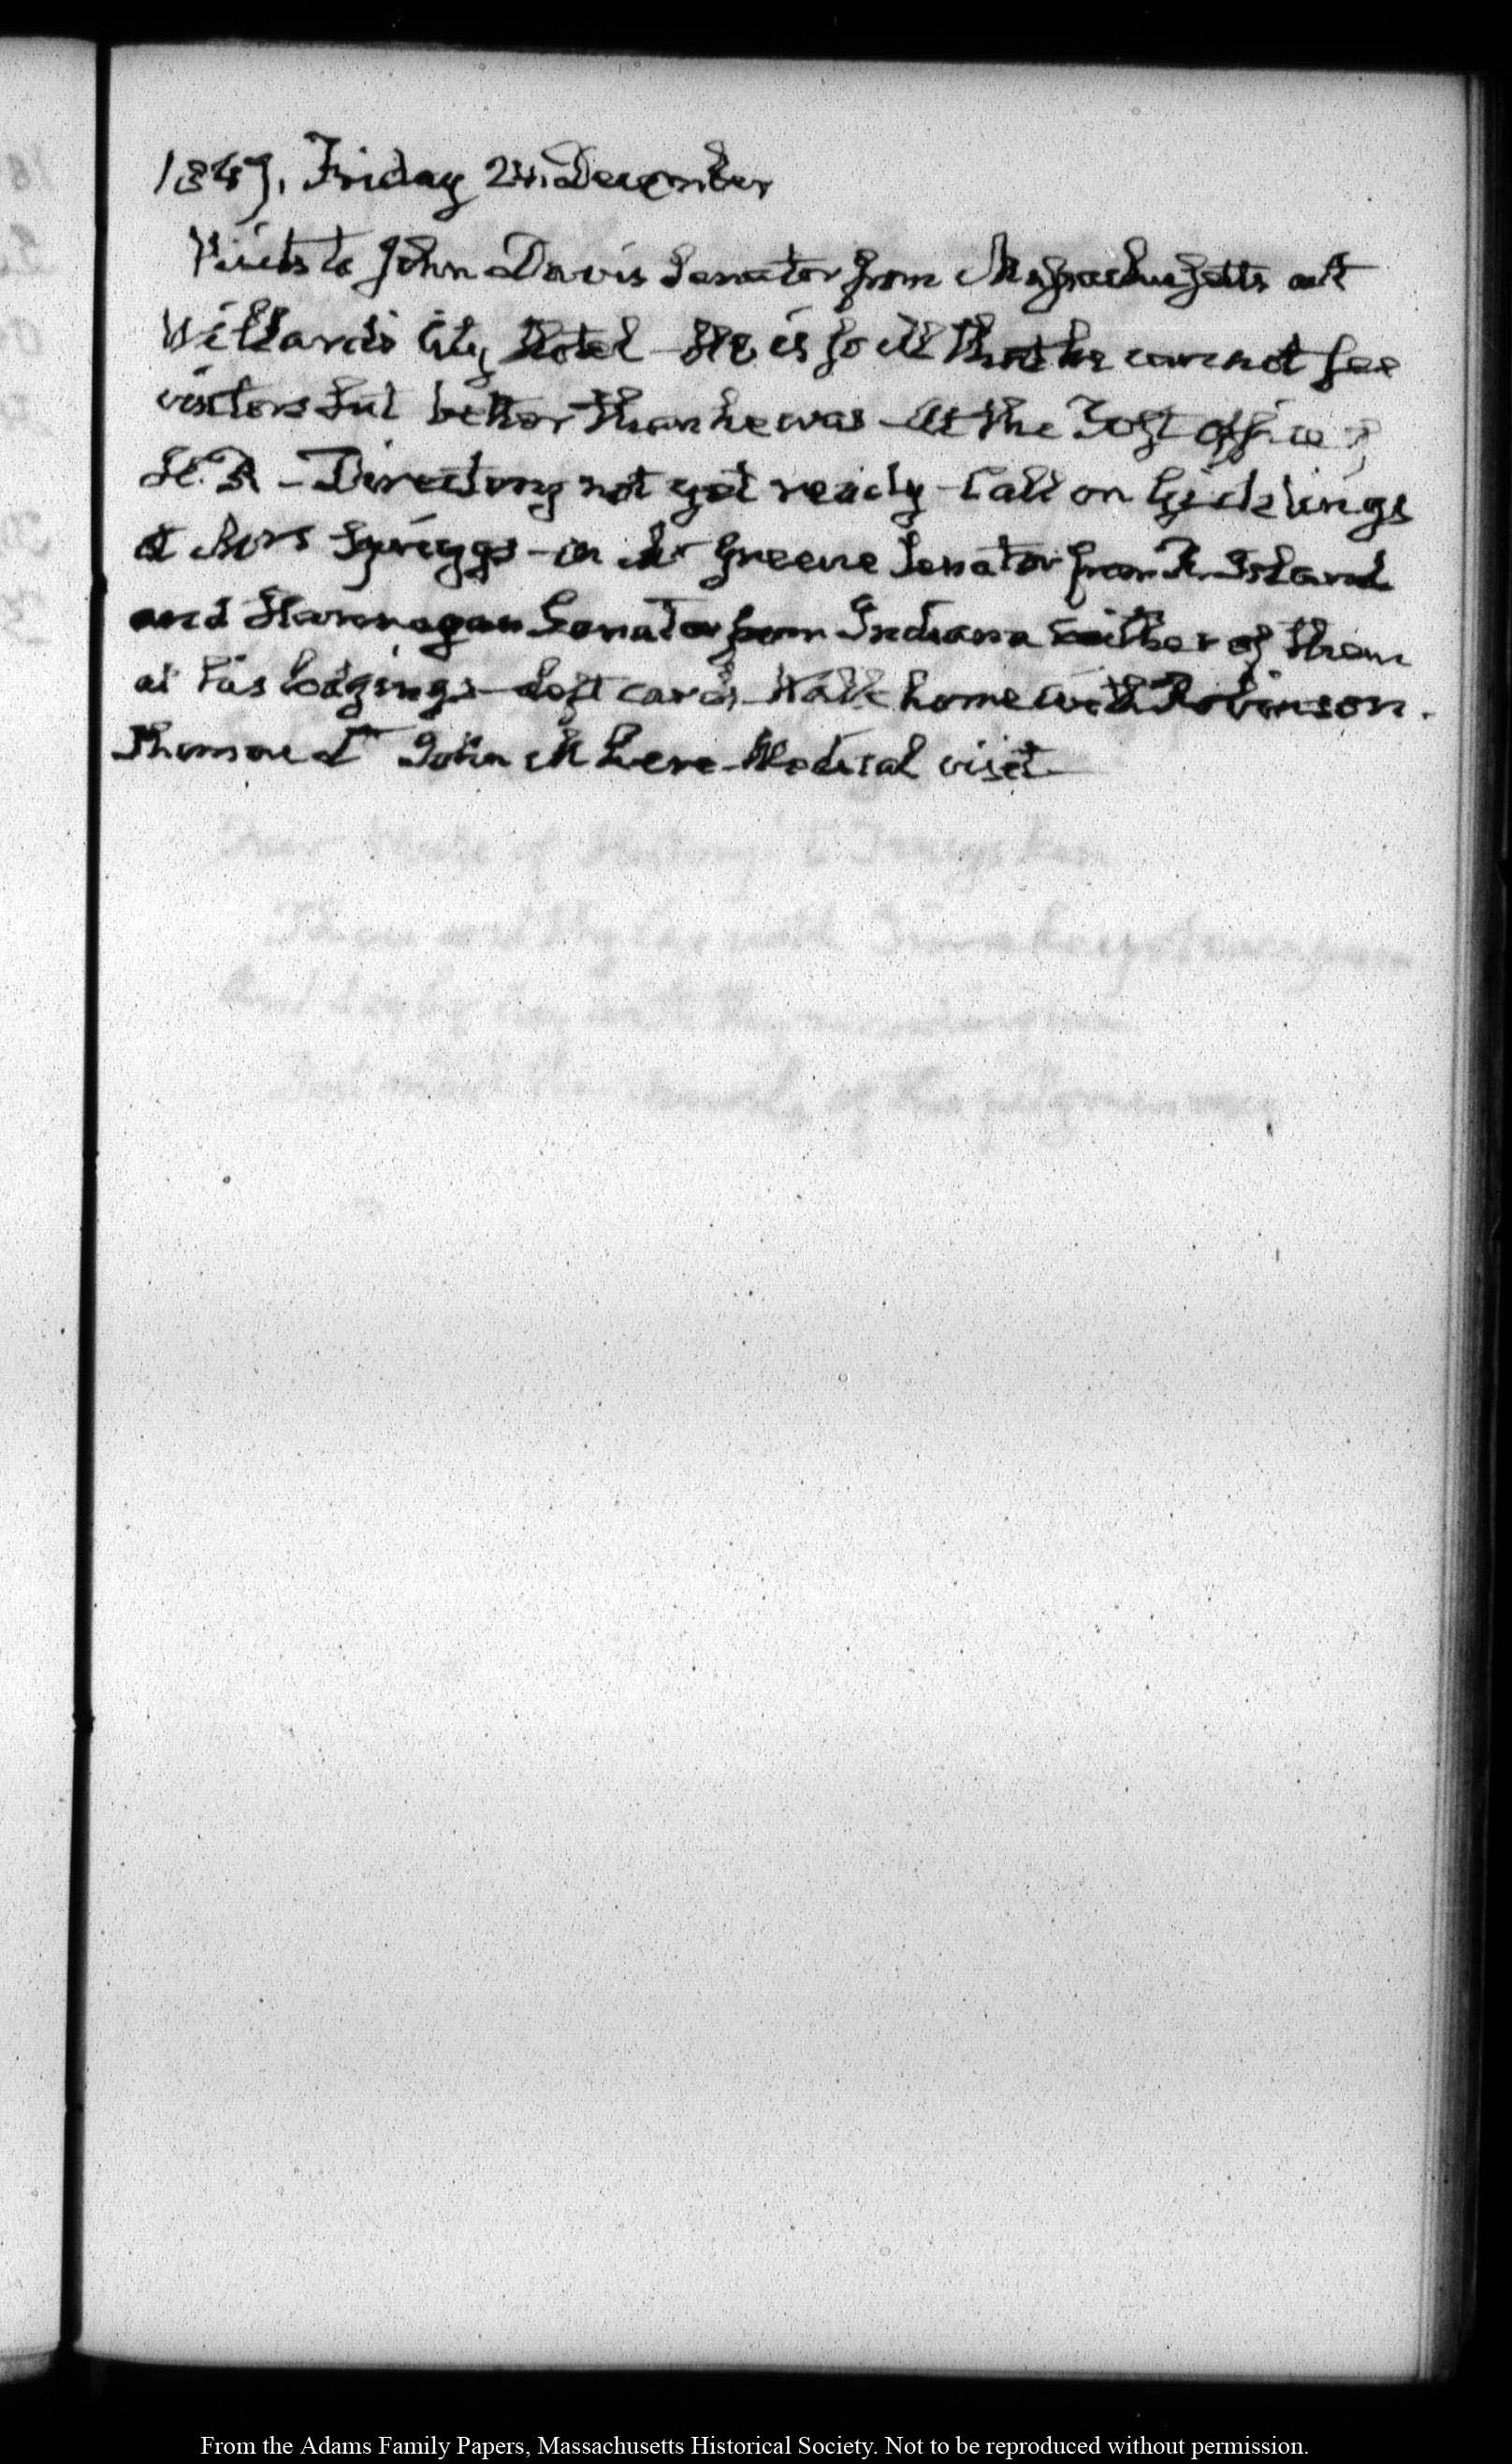 1847. Friday 24. December
Visits to John Davis Senator from Massachusetts at
Willard's City Hotel – He is so ill that he cannot see
visitors but better than he was – At the Post office of
H. R – Directory not yet ready – Call on Giddings
at Mrs Spriggs – on Mr Greene Senator from R. Island
and Hannegan Senator from Indiana neither of them
at his lodgings – left cards – Walk home with Robinson.
Thomas Dr John M here – Medical visit –
From the Adams Family Papers, Massachusetts Historical Society. Not to be reproduced without permission.